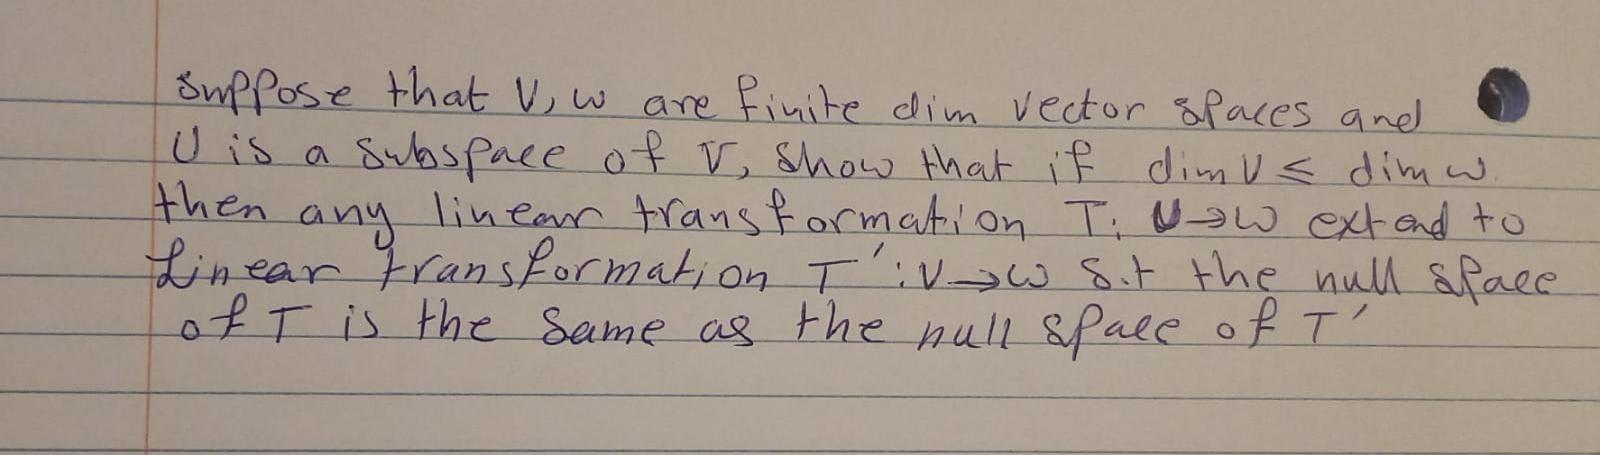 Suppose that V, W are finite dim vector spaces and
U is a subspace of V, show that if dim V ≤ dim W.
then any linear transformation T: U→W extend to
linear transformation T': V→W s.t the null space
of T is the same as the null space of T'